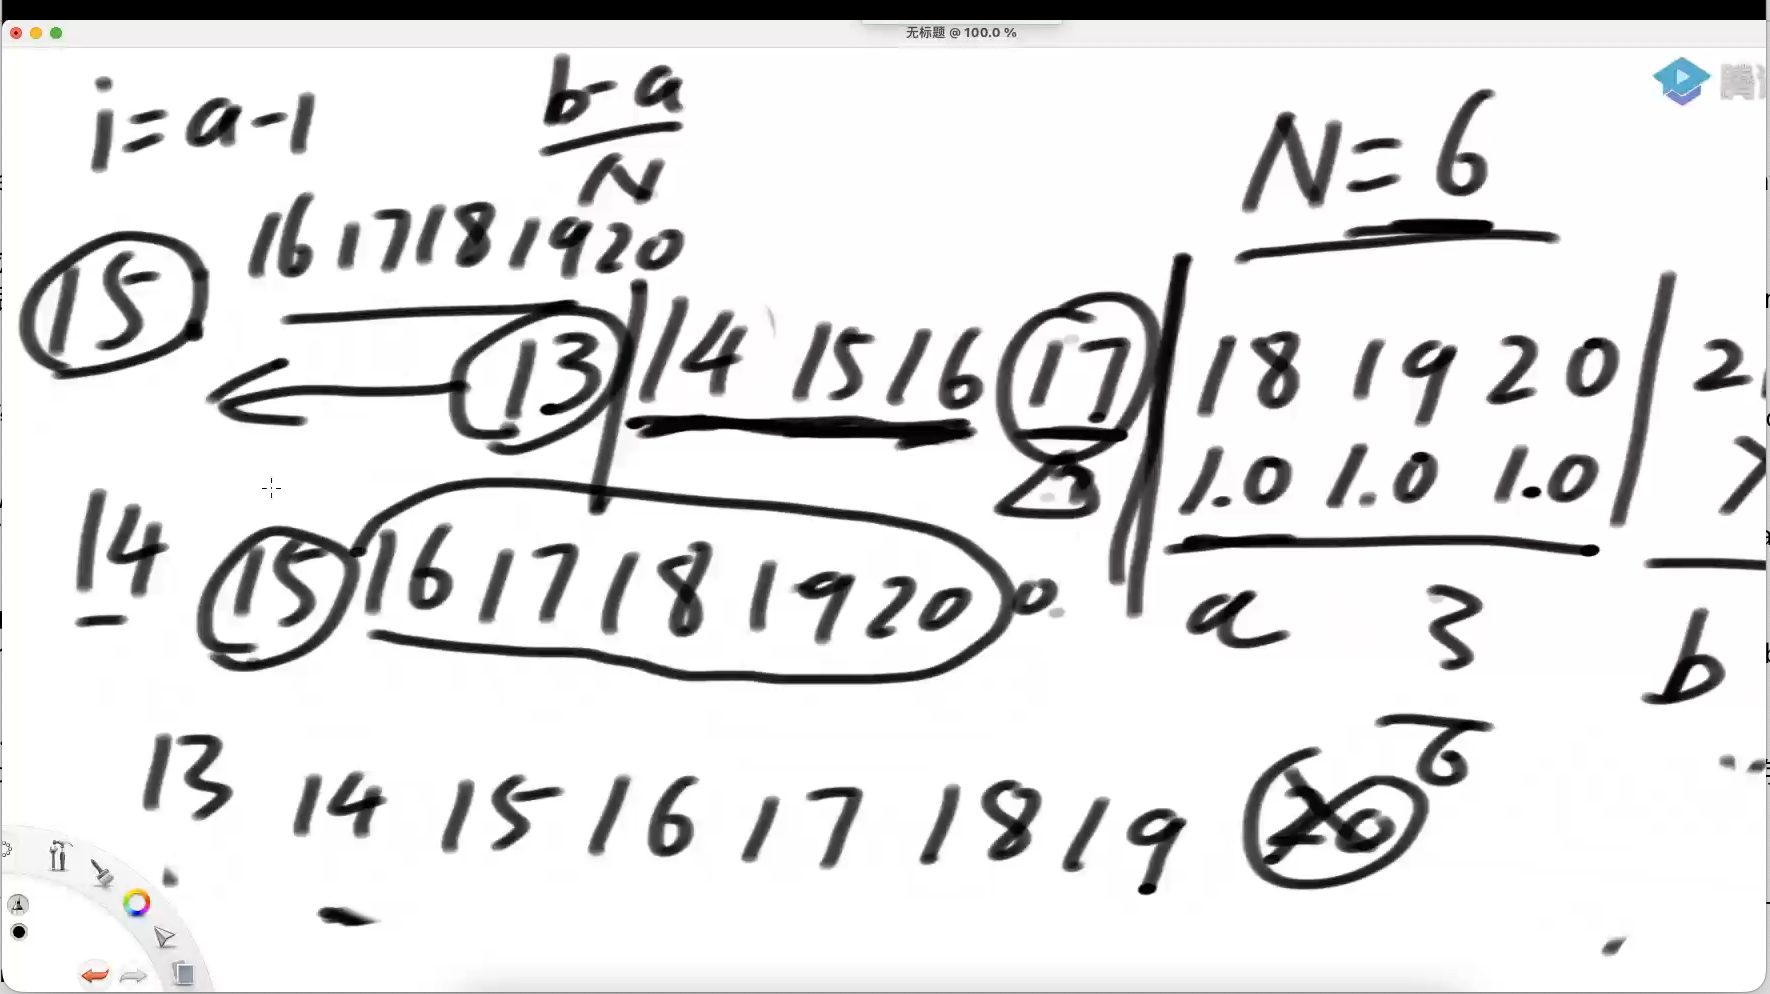 无标题 @ 100.0 %
i=a-1
b-a
N
N=6
腾
16 17 18 19 20
15
13 | 14 15 16 17 | 18 19 20 | 2
1.0 1.0 1.0
14 15 16 17 18 19 20
a 3 b
6
13 14 15 16 17 18 19 20